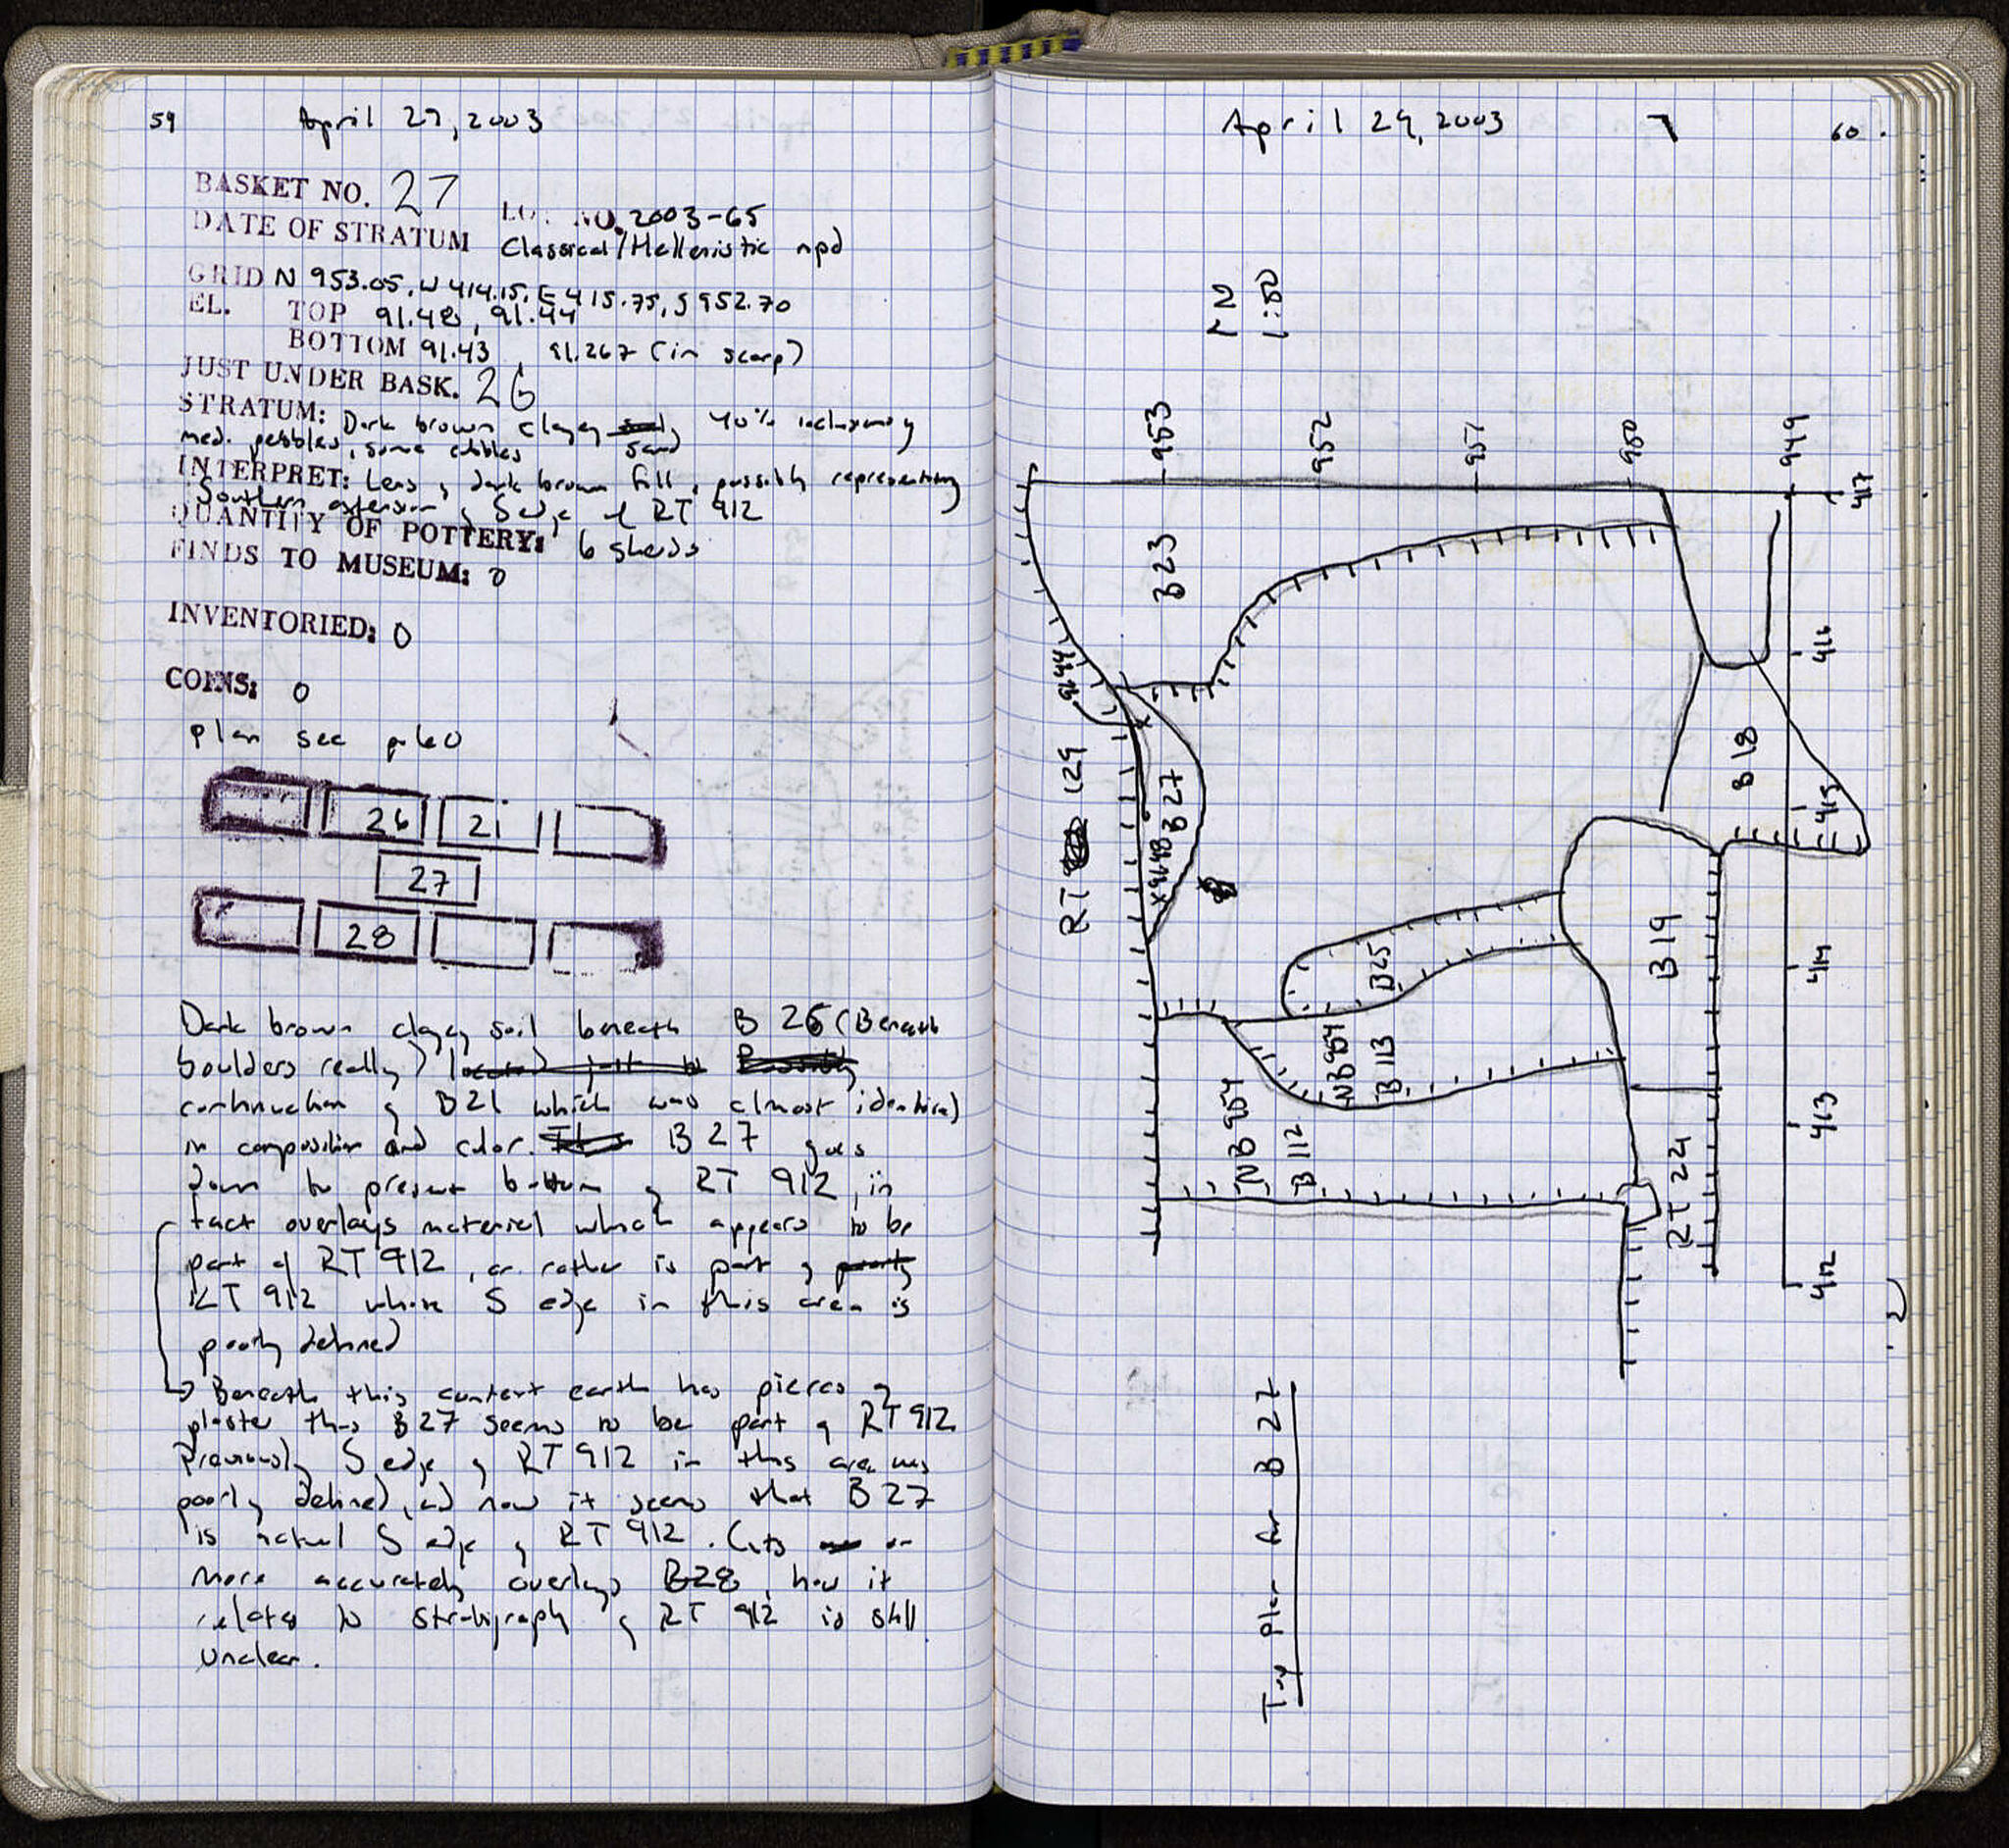 59 April 29, 2003
BASKET NO. 27
LOT NO. 2003-65
DATE OF STRATUM Classical/Hellenistic npd
GRID N 953.05, W 414.15, E 415.75, S 952.70
EL. TOP 91.48, 91.44
BOTTOM 91.43, 91.267 (in scarp)
JUST UNDER BASK. 26
STRATUM: Dark brown clayey sand, 40% inclusions
med. pebbles, some cobbles
INTERPRET: Lens of dark brown fill, possibly representing
Southern extension of S edge of RT 912
QUANTITY OF POTTERY: 6 sherds
FINDS TO MUSEUM: 0
INVENTORIED: 0
COINS: 0
plan see p. 60
26 21
27
28
Dark brown clayey soil beneath B 26 (Beneath
boulders really)
continuation of B21 which was almost identical
in composition and color. B 27 goes
down to present bottom of RT 912, in
fact overlays material which appears to be
part of RT 912, or rather is part of
RT 912 whose S edge in this area is
poorly defined
Beneath this context earth has pieces of
plaster thus B27 seems to be part of RT 912
Previously S edge of RT 912 in this area was
poorly defined, and now it seems that B 27
is actual S edge of RT 912. Cuts or
more accurately overlays B28, how it
relates to stratigraphy of RT 912 is still
unclear.
April 29, 2003 60
N
1:50
953 952 951 950 949
417
B 23
416
91.44
RT 129
B 27
x91.48
B 18
415
B 19
B25
414
NB 954
B 113
413
NB 954
B 112
RT 224
412
Top plan for B 27